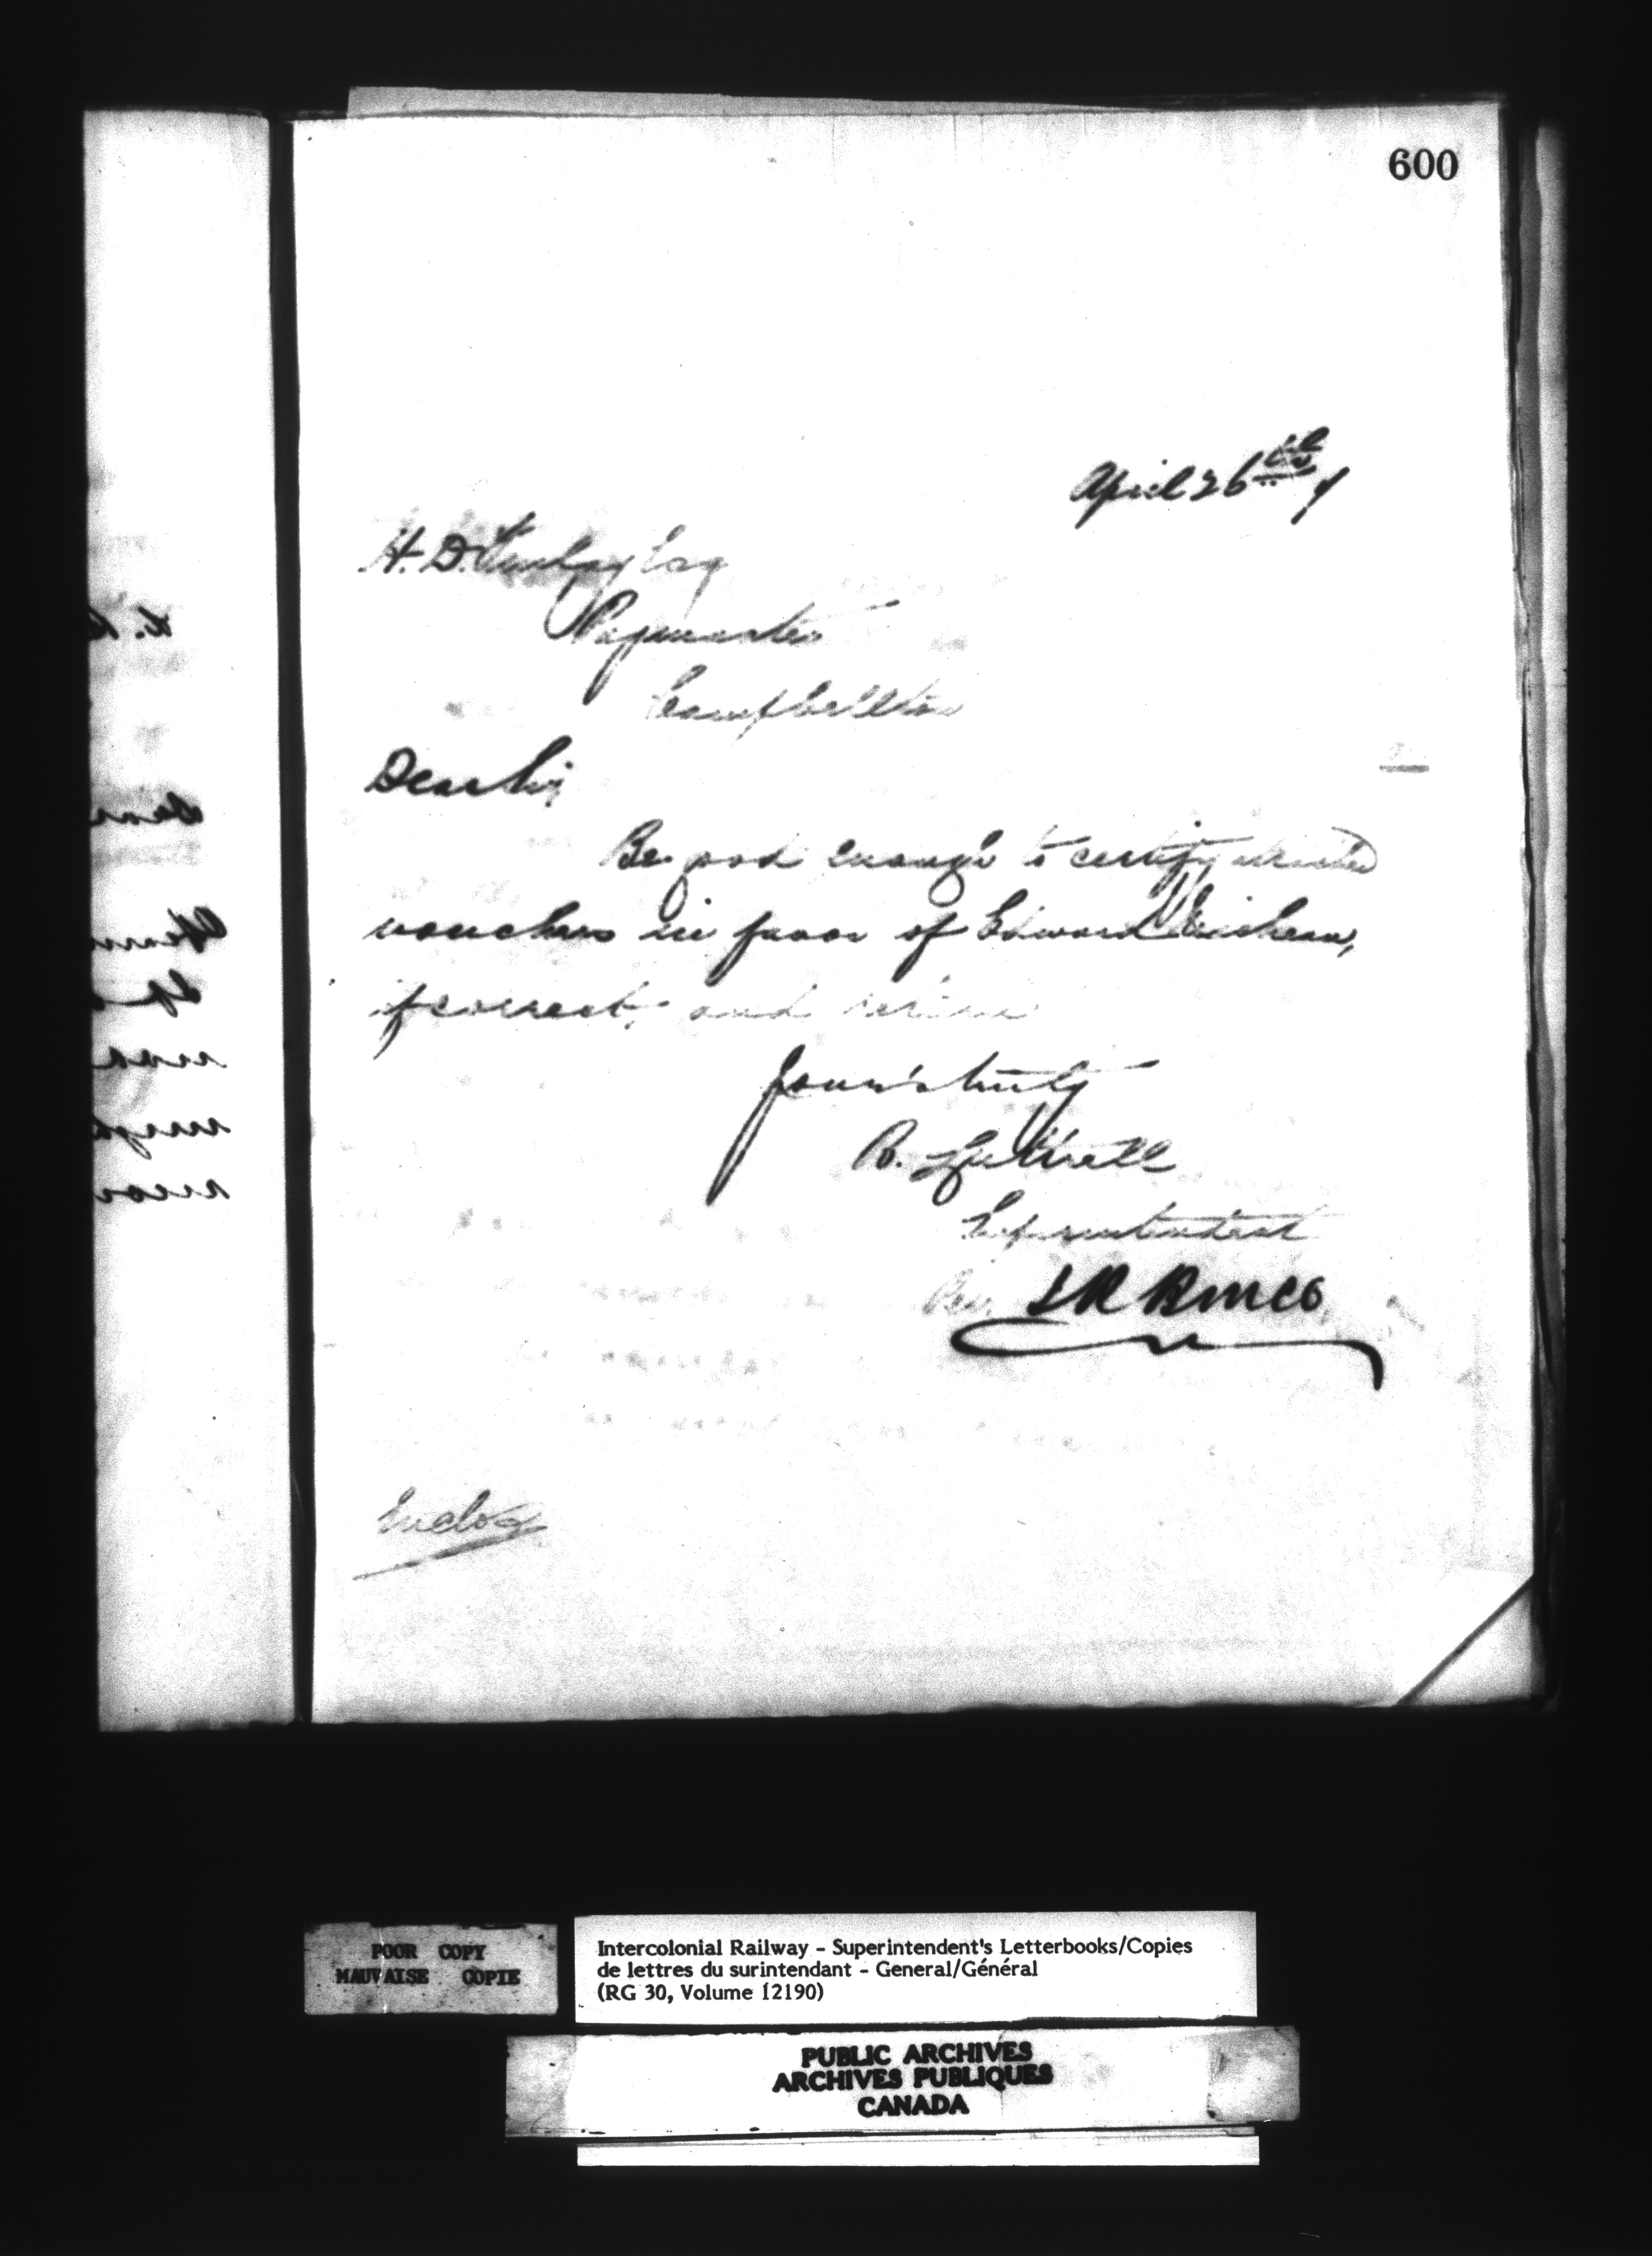 600
April 26th
H. D.
Paymaster
Campbellton
Dear Sir,
Be good enough to certify attached
vouchers in favor of Edward
if correct, and return
Yours truly
A. Luttrell
Superintendent
Per.
Enclos
POOR COPY
MAUVAISE COPIE
Intercolonial Railway - Superintendent's Letterbooks/Copies
de lettres du surintendant - General/Général
(RG 30, Volume 12190)
PUBLIC ARCHIVES
ARCHIVES PUBLIQUES
CANADA